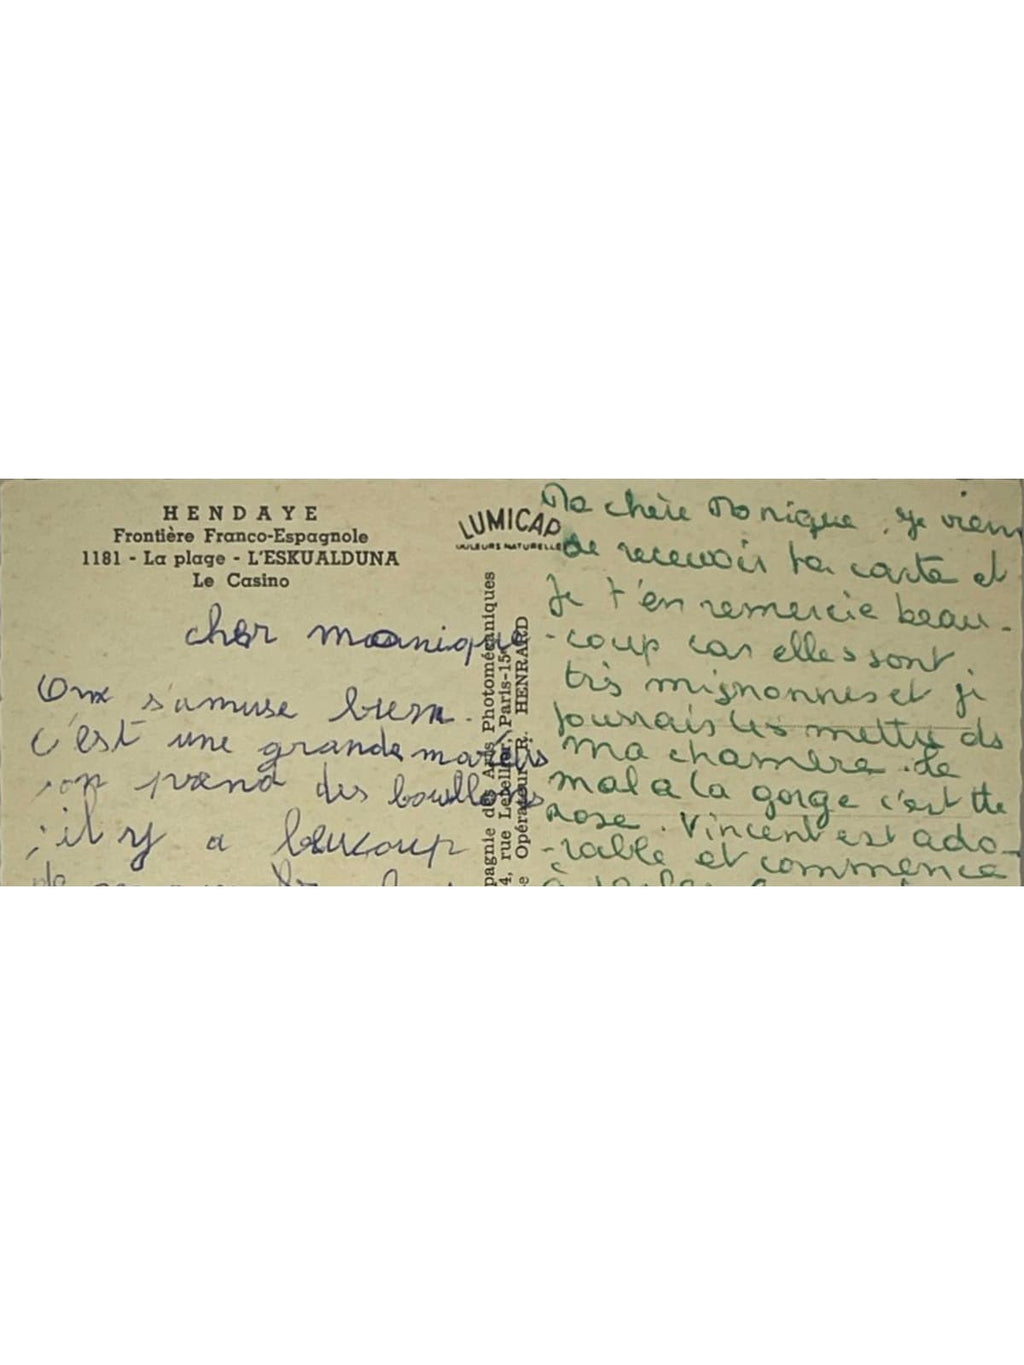 HENDAYE
Frontière Franco-Espagnole
1181 - La plage - L'ESKUALDUNA
Le Casino
cher monique
On s'amuse bien.
c'est une grande
on prend des
; il y a beucoup
LUMICAP
COULEURS NATURELLES
pagnie des Arts Photomécaniques
4, rue Letellier, Paris-15e
e Opérateur R. HENRARD
Ma chère Monique. Je viens
de recevoir ta carte et
Je t'en remercie beau-
-coup car elles sont
très mignonnes et je
pourrais les mettre ds
ma chambre. Le
mal a la gorge c'est tte
rose. Vincent est ado-
-rable et commence
à